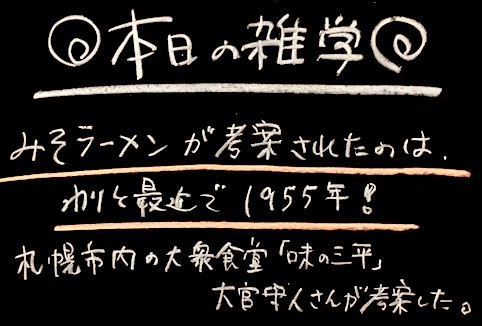 本日の雑学
みそラーメンが考案されたのは、
わりと最近で1955年!
札幌市内の大衆食堂「味の三平」
大宮守人さんが考案した。